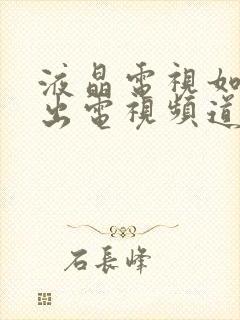 液晶電視如
出電視頻道
石長峰